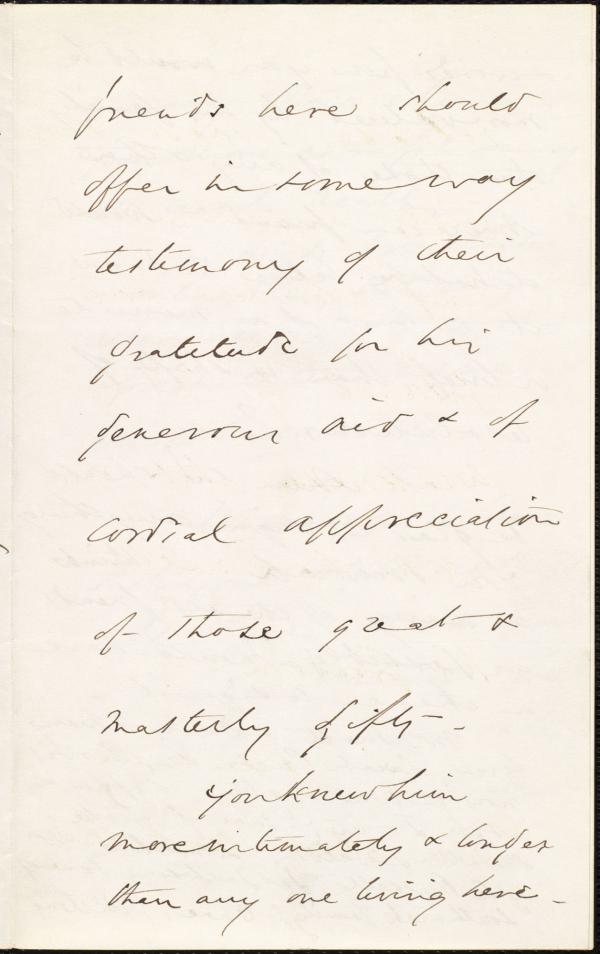 friends here should
offer in some way
testimony of their
gratitude for his
generous aid & of
cordial appreciation
of those great &
masterly gifts -
You knew him
more intimately & longer
than any one living here -